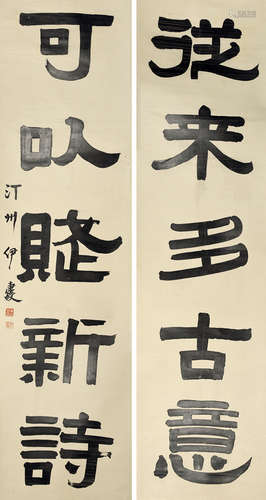 從来多古意
可以賦新詩
汀州伊秉綬